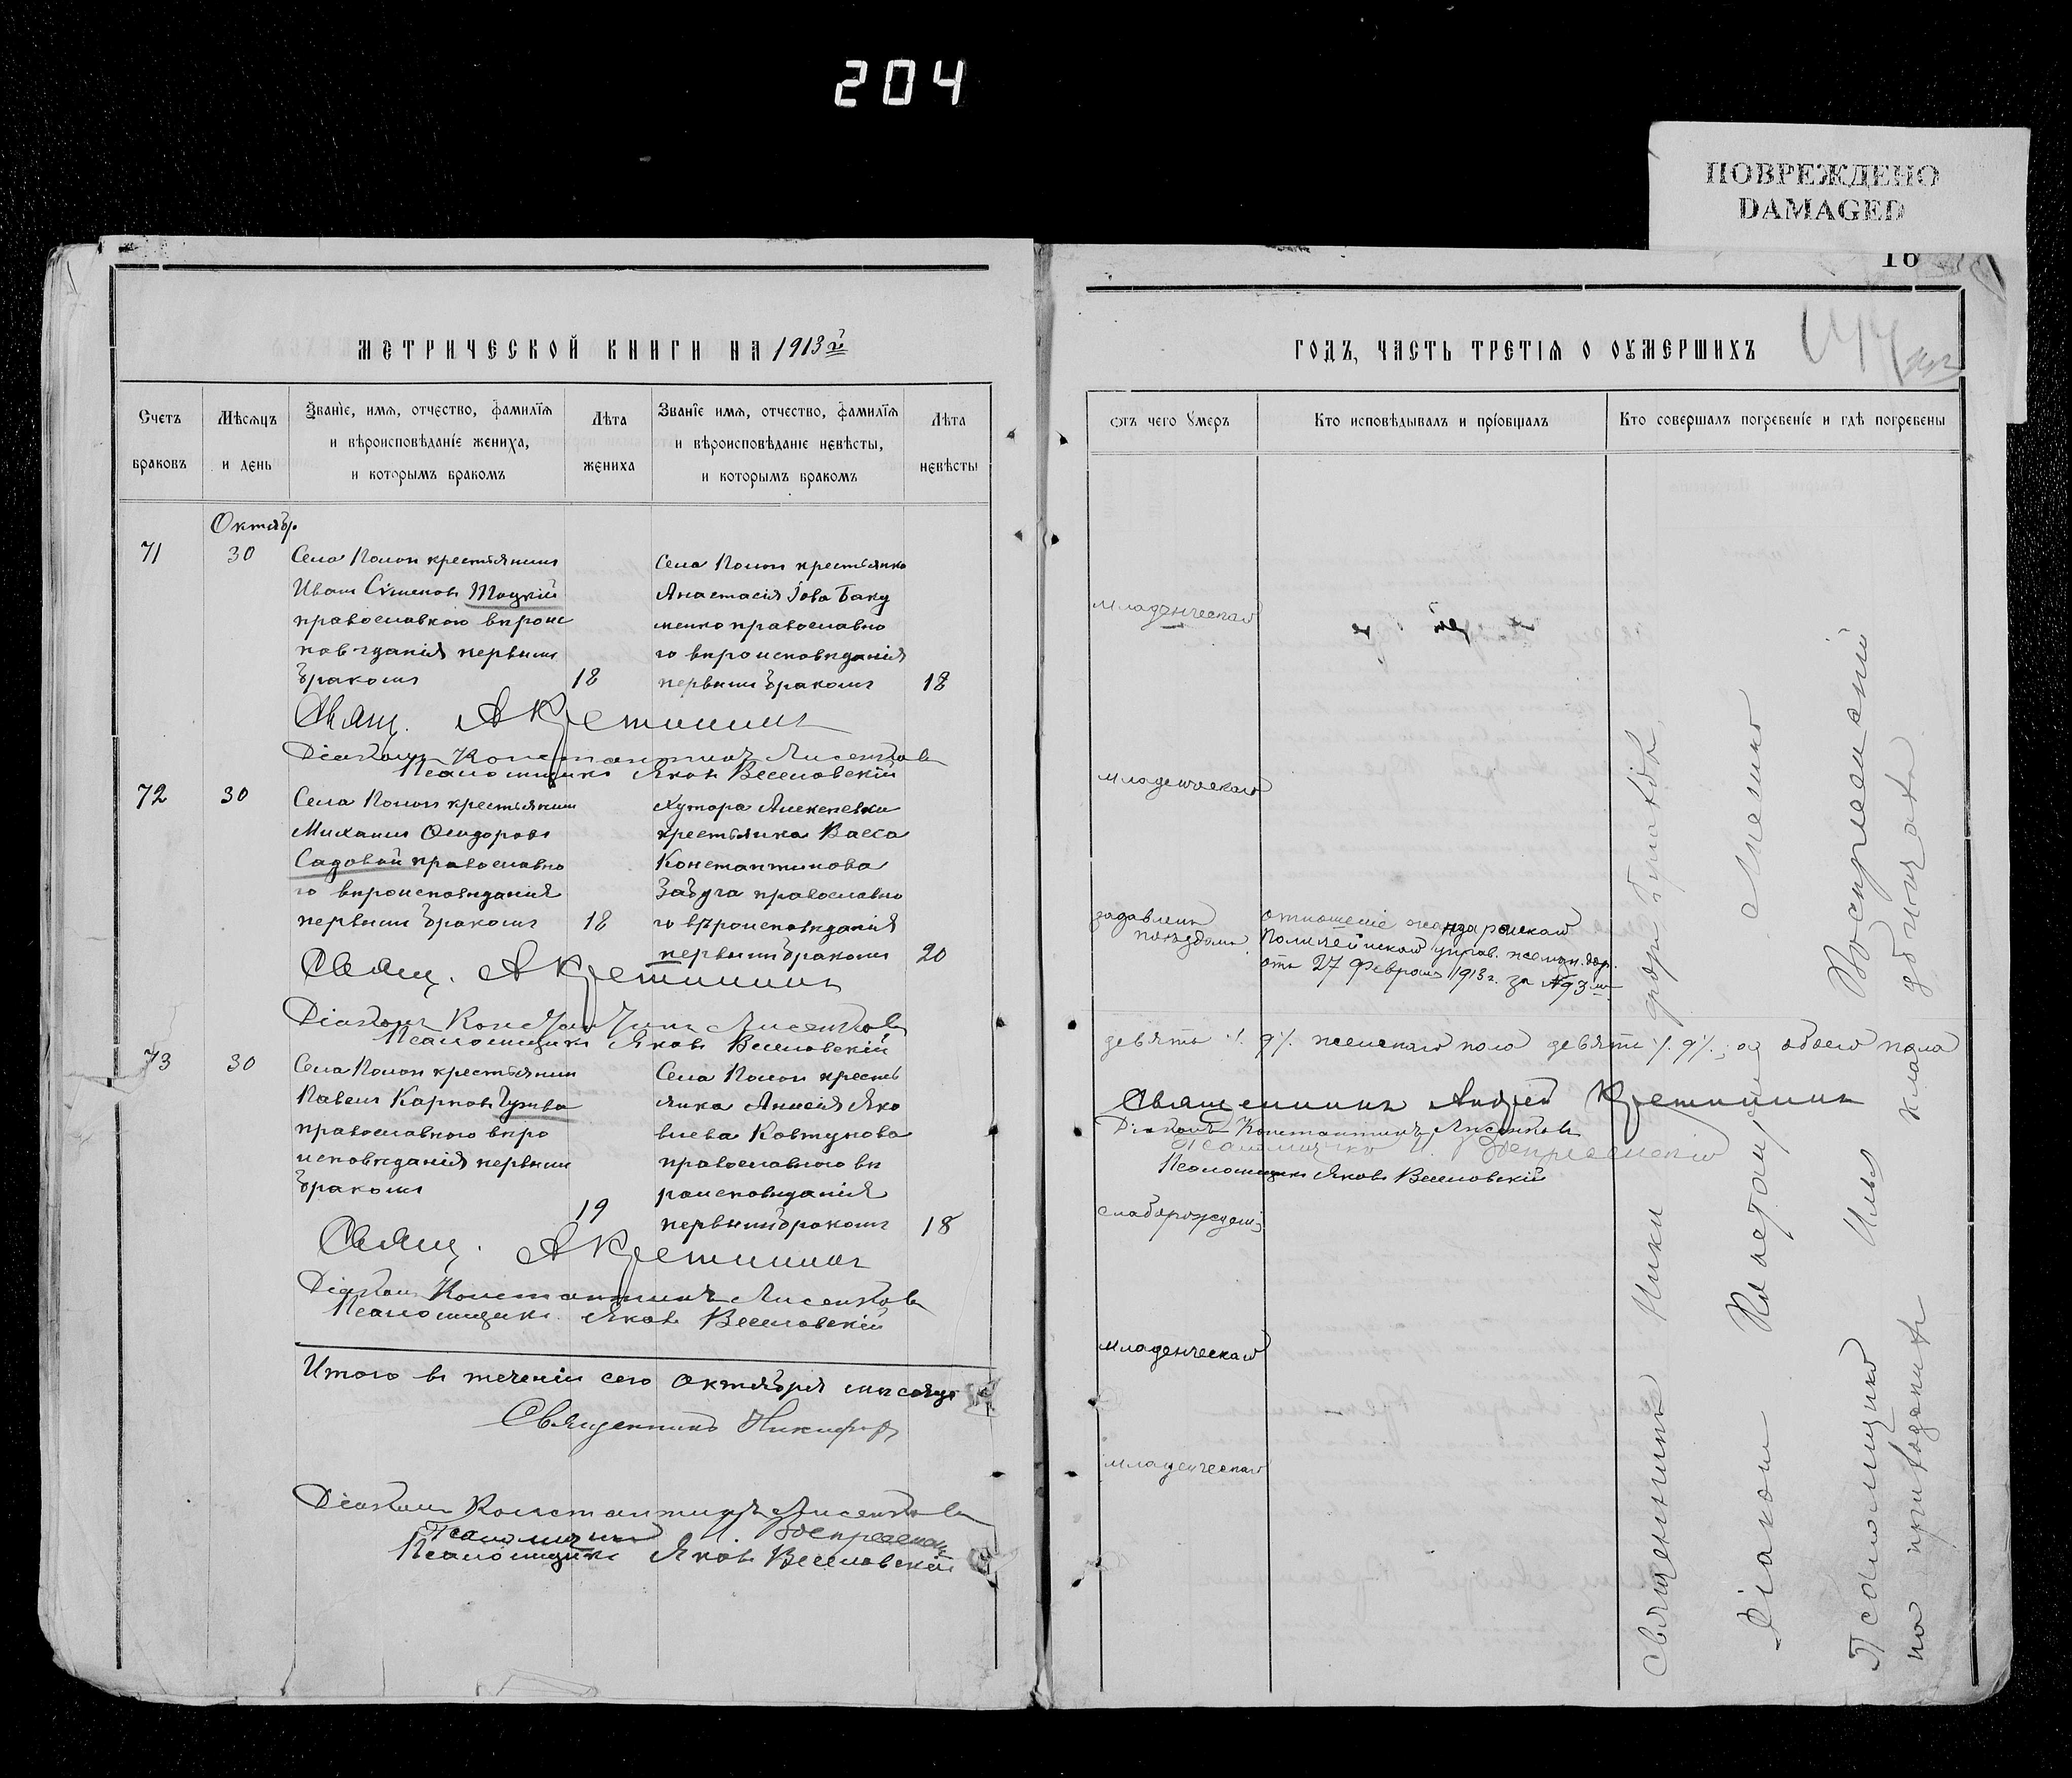 204
ПОВРЕЖДЕНО
DAMAGED
МЕТРИЧЕСКОЙ КНИГИ НА 1913 й
Счетъ браковъ
Мѣсяцъ и день
Званіе, имя, отчество, фамилія
и вѣроисповѣданіе жениха,
и которымъ бракомъ
Лѣта жениха
Званіе имя, отчество, фамилія
и вѣроисповѣданіе невѣсты,
и которымъ бракомъ
Лѣта невѣсты
Октябр.
71
30
Села Попои крестьянинъ
Иванъ Сѵмеоновъ Тоцкій
православного вѣроис
повѣданія первымъ
бракомъ
18
Села Попои крестьянка
Анастасія Іова Баку
менко православно
го вѣроисповѣданія
первымъ бракомъ
18
Свящ. А Кретининъ
Діаконъ Константинъ Лисенковъ
Псаломщикъ Яковъ Веселовскій
72
30
Села Попои крестьянинъ
Михаилъ Сидоровъ
Садовой православно
го вѣроисповѣданія
первымъ бракомъ
18
Хутора Алексеевки
крестьянка Васса
Константинова
Забуга православно
го вѣроисповѣданія
первымъ бракомъ
20
Свящ. А Кретининъ
Діаконъ Константинъ Лисенковъ
Псаломщикъ Яковъ Веселовскій
73
30
Села Попои крестьянин
Павелъ Карповъ Гужва
православного вѣро
исповѣданія первымъ
бракомъ
19
Села Попои кресть
янка Анисія Яко
влева Ковтунова
православного вѣ
роисповѣданія
первымъ бракомъ
18
Свящ. А Кретининъ
Діаконъ Константинъ Лисенковъ
Псаломщикъ Яковъ Веселовскій
Итого въ теченіи сего октября мѣсяца
Священникъ Никифор
Діаконъ Константинъ Лисенковъ
Псаломщикъ И. Воскресенск
Псаломщикъ Яковъ Веселовскій
16
ГОДЪ, ЧАСТЬ ТРЕТІЯ О ОУМЕРШИХЪ
отъ чего умеръ
Кто исповѣдывалъ и пріобщалъ
Кто совершалъ погребеніе и гдѣ погребены
младенческая
младенческая
задавленъ
поѣздомъ
отношеніе жандармскаго
Полицейскаго управ. желѣзн. дор.
отъ 27 Февраля 1913 г. за №93
девять ./. 9 ./. женскаго пола девять ./. 9 ./., а обоего пола
Священникъ Андрей Кретининъ
Діаконъ Константинъ Лисенковъ
Псаломщикъ И. Воскресенскій
Псаломщикъ Яковъ Веселовскій
слаборожденія
младенческая
младенческая
Священникъ Ники
Діаконъ
Псаломщикъ Илья Воскресенскій
на приходскомъ кладбищѣ